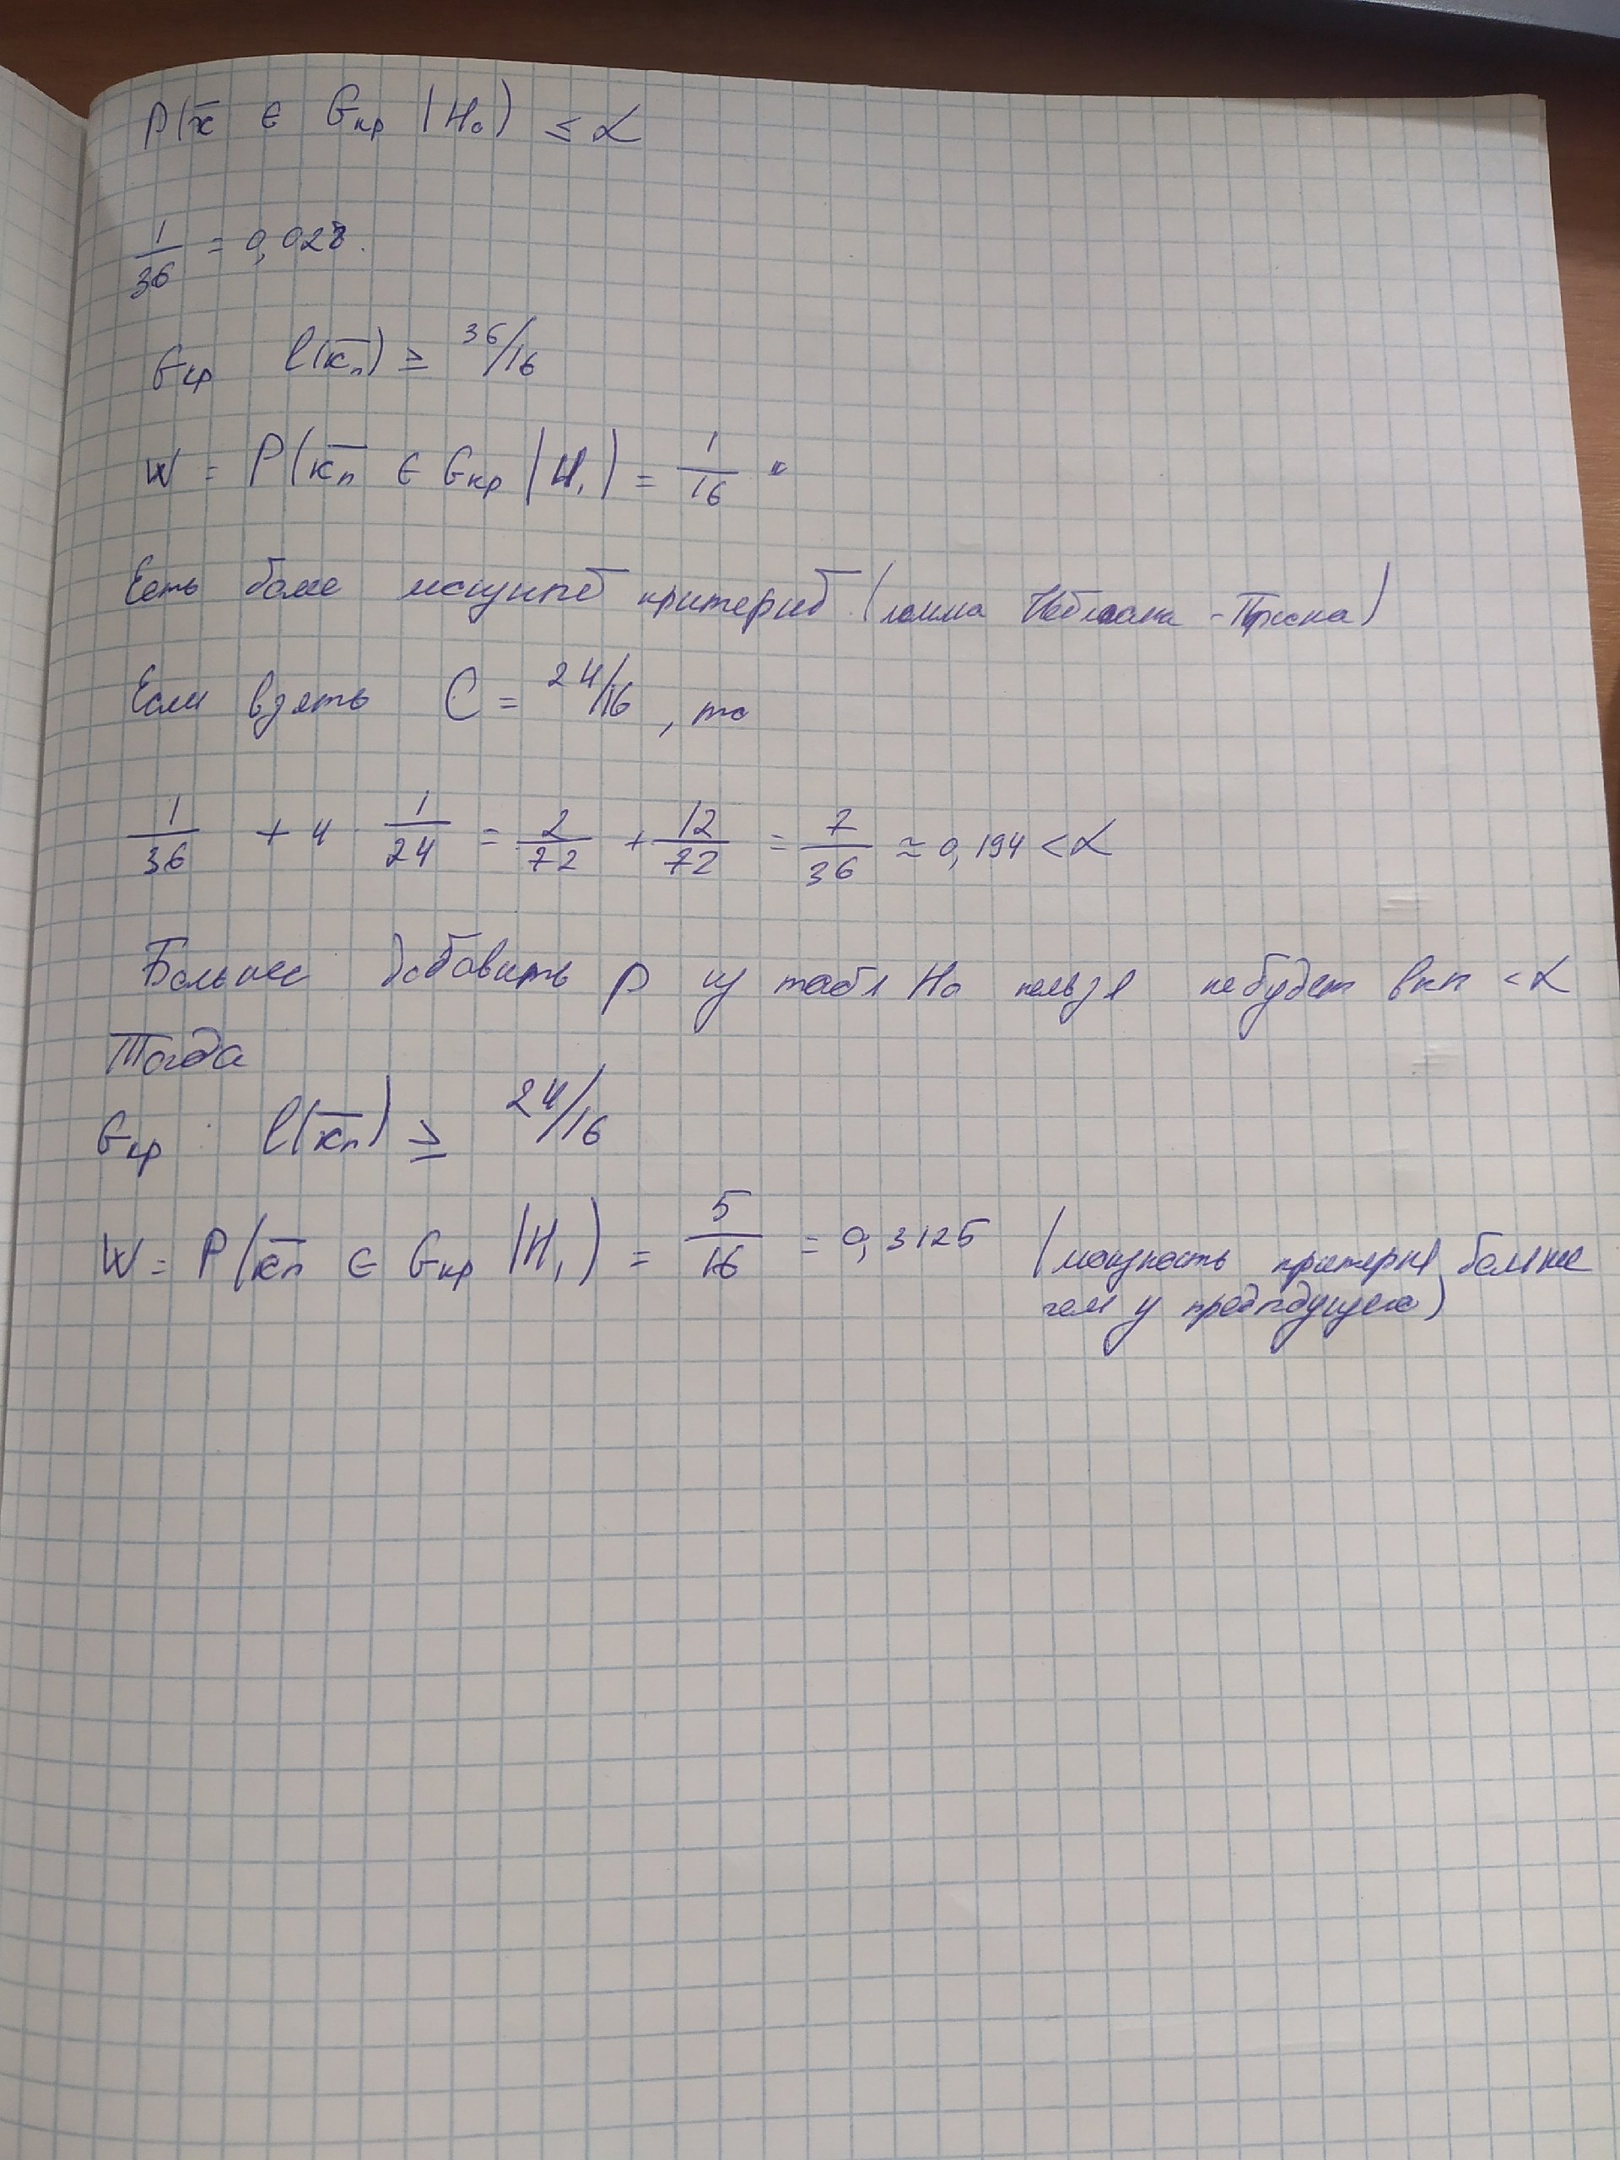 P(x̄ ∈ Gкр | H₀) ≤ α
1/36 = 0,028.
Gкр l(к̄п) ≥ 36/16
W = P(к̄п ∈ Gкр | H₁) = 1/16
Есть более мощный критерий (лемма Неймана - Пирсона)
Если взять C = 24/16, то
1/36 + 4 · 1/24 = 2/72 + 12/72 = 7/36 ≈ 0,194 < α
Больше добавить p из табл H₀ нельзя не будет < α
Тогда
Gкр : l(к̄п) ≥ 24/16
W = P(к̄п ∈ Gкр | H₁) = 5/16 = 0,3125 (мощность критерия больше
чем у предыдущего)